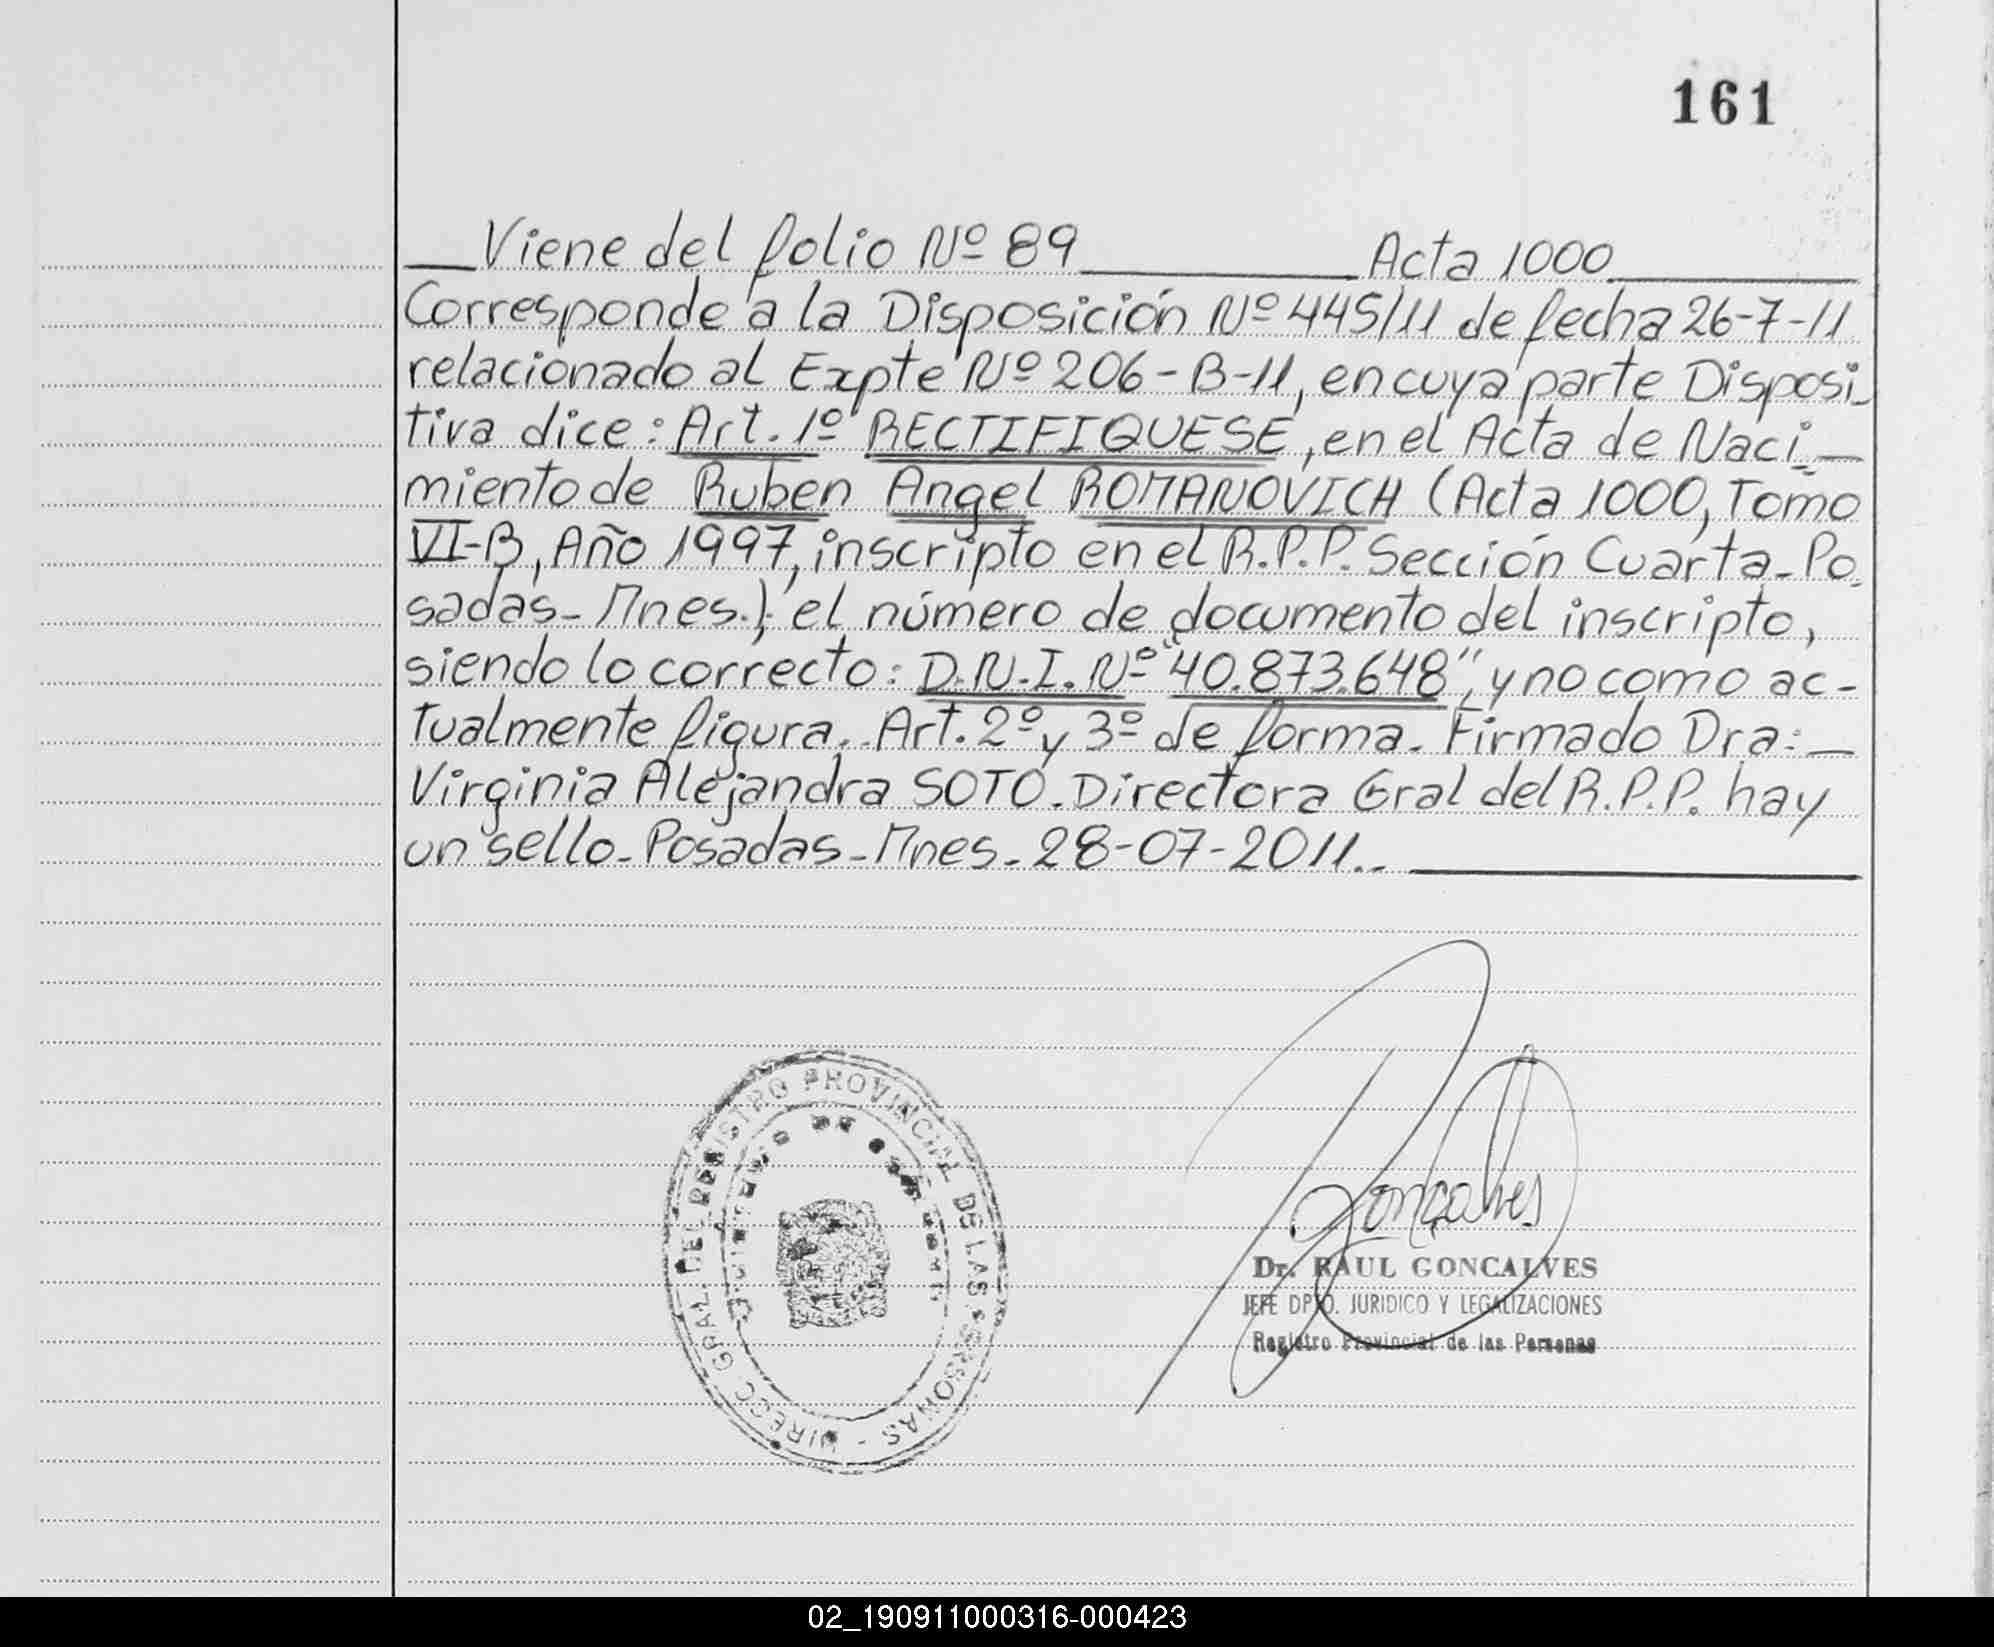 161
Viene del folio Nº 89 Acta 1000
Corresponde a la Disposición Nº 445/11 de fecha 26-7-11
relacionado al Expte Nº 206-B-11, en cuya parte Disposi_
tiva dice: Art. 1º RECTIFIQUESE, en el Acta de Naci_
miento de Ruben Angel ROMANOVICH (Acta 1000, Tomo
VI-B, Año 1997, inscripto en el R.P.P. Sección Cuarta-Po_
sadas-Mnes.); el número de documento del inscripto,
siendo lo correcto: D.N.I. Nº "40.873.648", y no como ac-
tualmente figura. Art. 2º y 3º de forma. Firmado Dra:
Virginia Alejandra SOTO. Directora Gral del R.P.P. hay
un sello-Posadas-Mnes-28-07-2011.-
DIRECC. GRAL. DEL REGISTRO PROVINCIAL DE LAS PERSONAS -
Goncalves
Dr. RAUL GONCALVES
JEFE DPTO. JURIDICO Y LEGALIZACIONES
Registro Provincial de las Personas
02_190911000316-000423